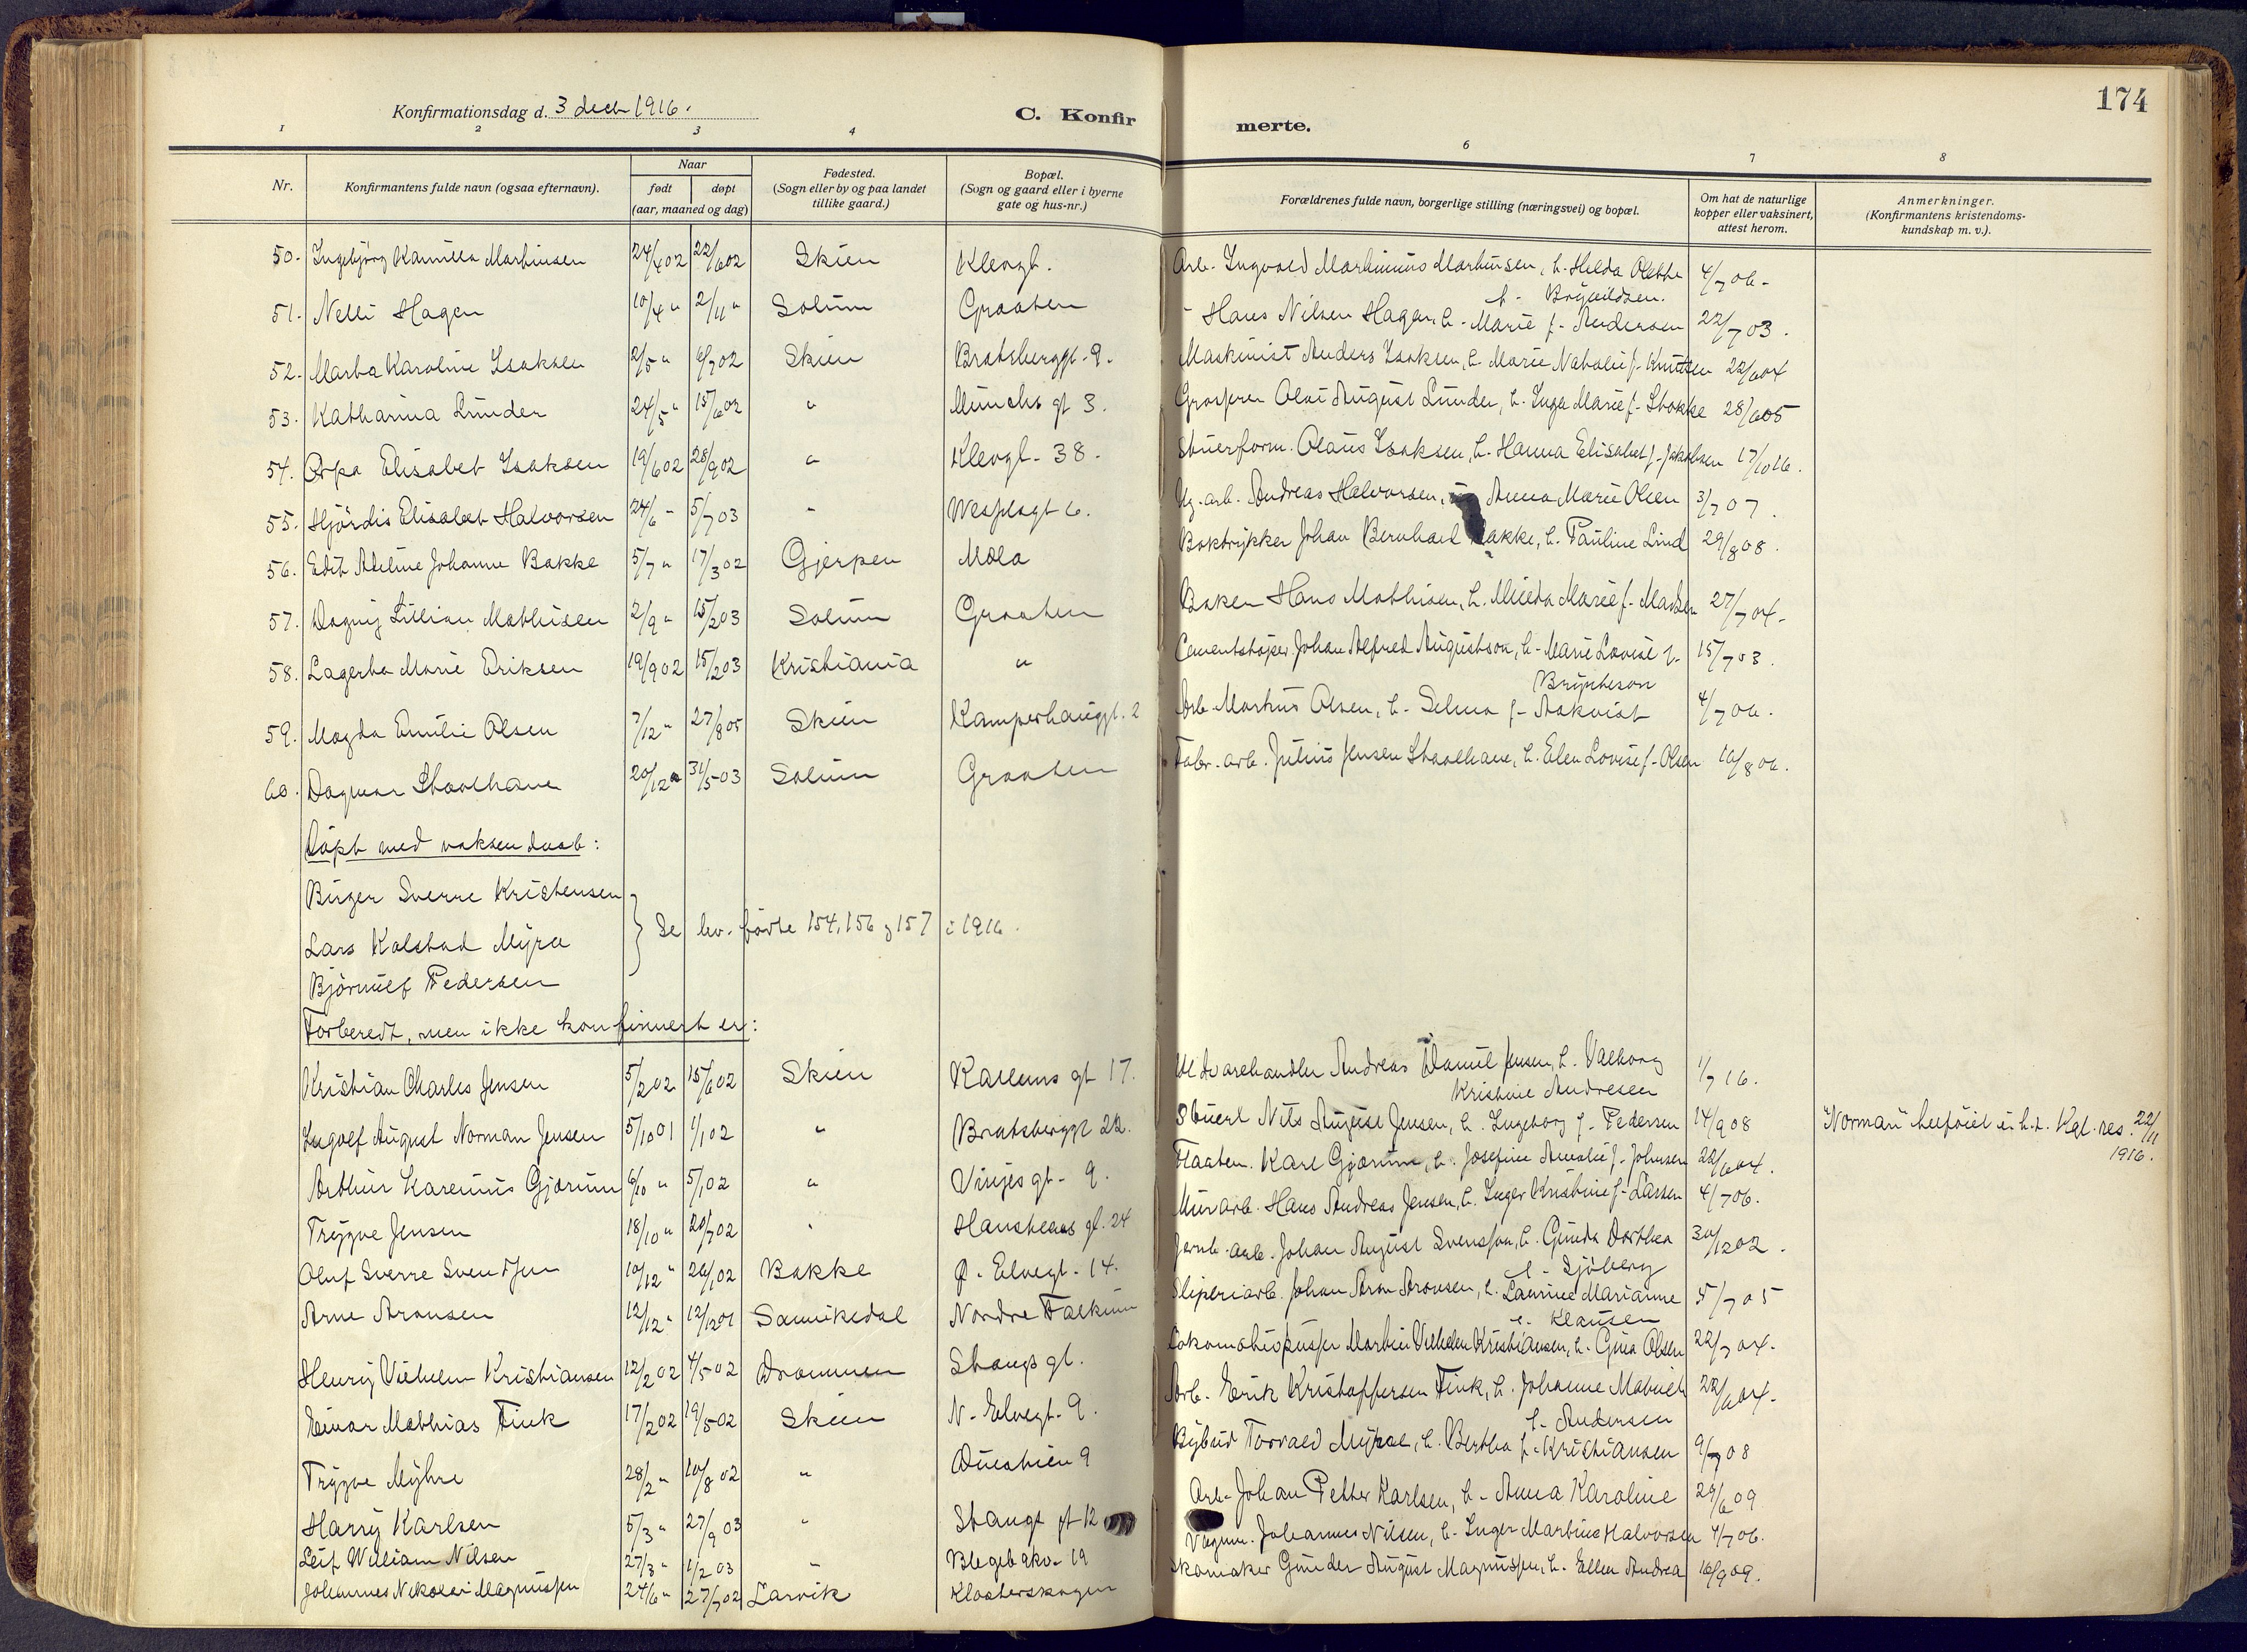 174
Konfirmationsdag d. 3 decb 1916.
C. Konfirmerte.
1 2 3 4 6 7 8
Nr.
Konfirmantens fulde navn (ogsaa efternavn).
Naar
født døpt
(aar, maaned og dag)
Fødested.
(Sogn eller by og paa landet
tillike gaard.)
Bopæl.
(Sogn og gaard eller i byerne
gate og hus-nr.)
Forældrenes fulde navn, borgerlige stilling (næringsvei) og bopæl.
Om hat de naturlige
kopper eller vaksinert,
attest herom.
Anmerkninger.
(Konfirmantens kristendoms-
kundskap m. v.).
50. Ingebjørg Kamilla Martinsen 24/4 02 22/6 02 Skien Klevgt. Arb. Ingvald Martinius Martinsen, h. Hilda 4/7 06.
f. Brynildsen.
51. Nelli Hagen 10/4 " 2/11 " Solum Graaten - Hans Nilsen Hagen, h. Marie f. Andersen 22/7 03.
52. Marta Karoline Isaksen 2/5 " 6/7 02 Skien Bratsberggt. 9. Maskinist Anders Isaksen, h. Marie Natalie f. Knutsen 22/6 04
53. Katharina Lunder 24/5 " 15/6 02 " Munchs gt 3. Grosserer Olai August Lunder, h. Inga Marie f. Stokke 28/6 05
54. Elisabet Isaksen 19/6 02 28/9 02 " Klevgt. 38. Stuerform. Olaus Isaksen, h. Hanna Elisabet f. Jakobsen 17/10 16.
55. Hjördis Elisabet Halvorsen 24/6 - 5/7 03 " Wesselsgt 6. Ug. arb. Andreas Halvorsen, Anna Marie Olsen 3/7 07.
56. Edit Adeline Johanne Bakke 5/7 " 17/3 02 Gjerpen Mæla Boktrykker Johan Bernhard Bakke, h. Pauline Lind 29/8 08.
57. Dagny Lillian Mathisen 2/9 " 15/2 03 Solum Graaten Baker Hans Mathisen, h. Milda Marie f. Madsen 27/7 04.
58. Lagerta Marie Eriksen 19/9 02 15/2 03 Kristiania " Cementstøper Johan Alfred Augustson, h. Marie Lovise f. 15/7 03.
Brynteson
59. Magda Emilie Olsen 7/12 " 27/8 05 Skien Kamperhauggt. 2 Arb. Markus Olsen, h. Selma f. Aakvist 4/7 06.
60. Dagmar Staalhane 20/12 " 31/5 03 Solum Graaten Fabr. arb. Julius Jensen Staalhane, h. Elen Lovise f. Olsen 16/8 06.
Døpt med voksen daab:
Birger Sverre Kristensen
Lars Kolstad Myra } Se lev. fødte 154, 156 og 157 i 1916.
Bjørnulf Pedersen
Forberedt, men ikke konfirmert er:
Kristian Charles Jensen 5/2 02 15/6 02 Skien Kallums gt 17. Uldvarehandler Andreas Daniel Jensen, h. Valborg 1/7 16.
Kristine Andresen
Ingolf August Norman Jensen 5/10 01 1/1 02 " Bratsberggt 22. Stuert Nils August Jensen, h. Ingeborg f. Pedersen 14/9 08 "Norman" tilføiet i h.t. Kgl. res. 22/11
1916.
Arthur Karenius Gjærum 6/10 " 5/1 02 " Vinjes gt. 9. Fløaterm. Karl Gjærum, h. Josefine Amalie f. Johnsen 22/6 04.
Trygve Jensen 18/10 " 20/7 02 " Hansteens gt. 24 Murarb. Hans Andreas Jensen, h. Inger Kristine f. Larsen 4/7 06.
Oluf Sverre Svendsen 10/12 " 26/1 02 Bakke Ø. Elvegt. 14. Jernb. arb. Johan August Svensson, h. Gunda Dorthea 30/12 02.
f. Sjöberg
Arne Aronsen 12/12 " 12/12 01 Sannikedal Nordre Falkum Sliperiarb. Johan Aron Aronsen, h. Laurine Marianne 5/7 05
f. Klausen
Henry Vilhelm Kristiansen 12/2 02 4/5 02 Drammen Stangs gt. Lokomotivpusser Martin Vilhelm Kristiansen, h. Gina Olsen 22/7 04.
Einar Mathias Fink 17/2 02 19/5 02 Skien N. Elvegt. 9. Arb. Erik Kristoffersen Fink, h. Johanne 22/6 04.
f. Andersen
Trygve Myhre 28/2 " 10/8 02 " 9 Bybud Torvald Myhre, h. Bertha f. Kristiansen 9/7 08
Harry Karlsen 5/3 " 27/9 03 " Stangs gt 12 Arb. Johan Petter Karlsen, h. Anna Karoline 29/6 09
Leif William Nilsen 27/3 " 1/2 03 " 19 Vognm. Johannes Nilsen, h. Inger Martine Halvorsen 4/7 06.
Johannes Nikolai Magnussen 24/6 " 27/7 02 Larvik Klosterskogen Skomaker Gunder August Magnussen, h. Ellen Andrea 16/9 09.